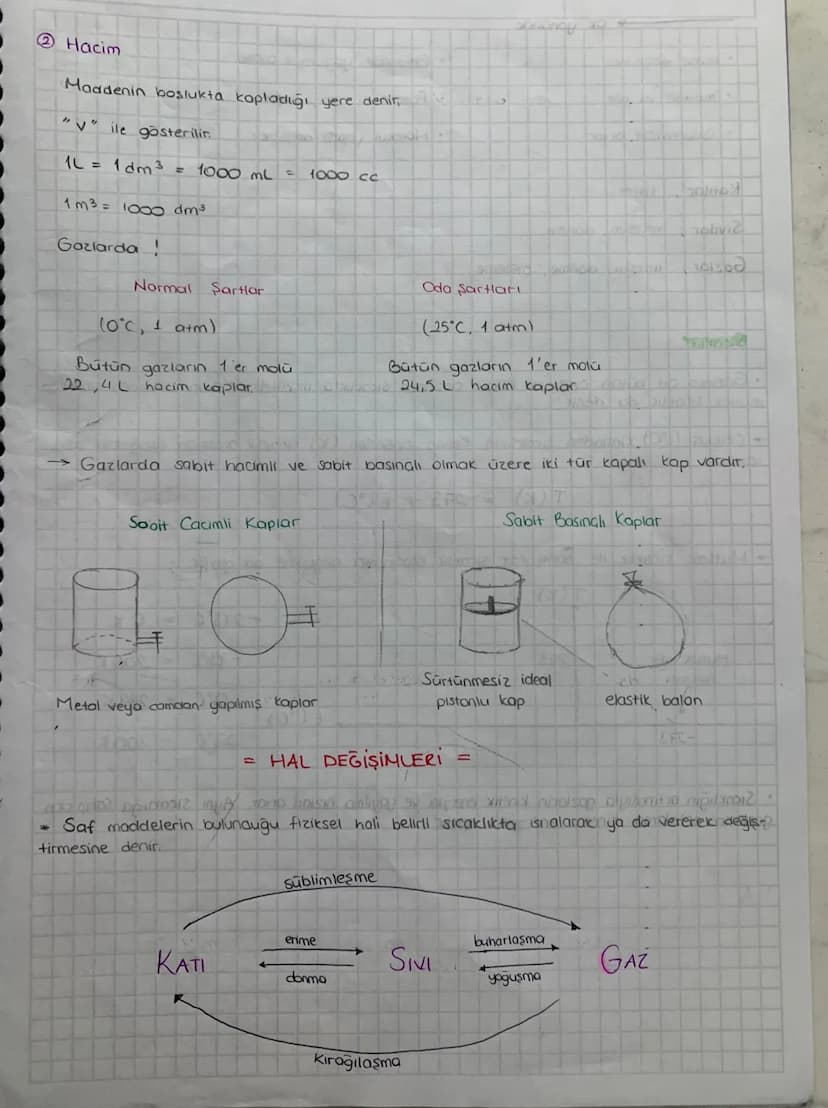 ② Hacim
Maddenin boşlukta kapladığı yere denir.
"v" ile gösterilir.
1L = 1 dm³ = 1000 mL = 1000 cc
1 m³ = 1000 dm³
Gazlarda !
Normal Şartlar
(0°C, 1 atm)
Bütün gazların 1'er molü
22,4L hacim kaplar.
Oda şartları
(25°C, 1 atm)
Bütün gazların 1'er molü
24,5 L hacim kaplar.
→ Gazlarda sabit hacimli ve sabit basınçlı olmak üzere iki tür kapalı kap vardır.
Sabit Cacimli Kaplar
Metal veya camdan yapılmış kaplar
Sabit Basınçlı Kaplar
Sürtünmesiz ideal
pistonlu kap
elastik balon
= HAL DEĞİŞİMLERİ =
* Saf maddelerin bulunduğu fiziksel hali belirli sıcaklıkta ısı alarak ya da vererek değiş-
tirmesine denir.
süblimleşme
KATI
erime
donma
SIVI
buharlaşma
yoğuşma
GAZ
Kırağılaşma